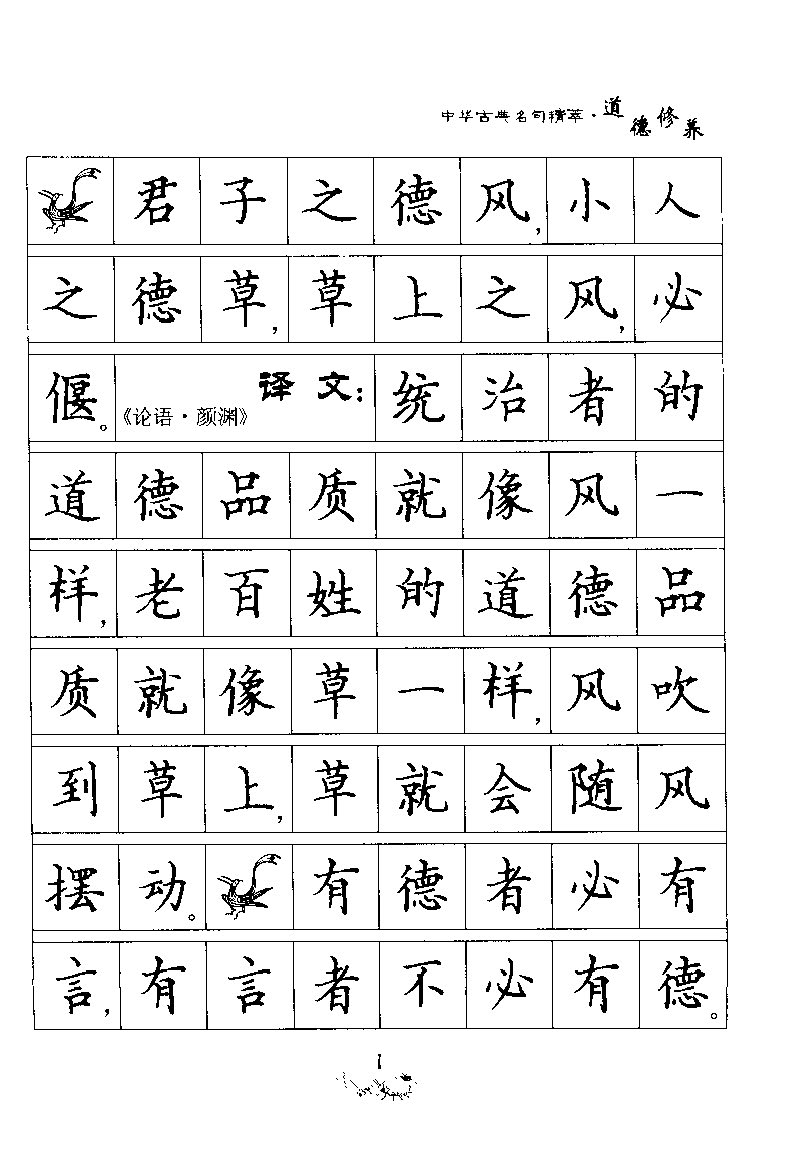 中华古典名句精萃·道德修养
君子之德风，小人
之德草，草上之风，必
偃。《论语·颜渊》译文：统治者的
道德品质就像风一
样，老百姓的道德品
质就像草一样，风吹
到草上，草就会随风
摆动。有德者必有
言，有言者不必有德。
1